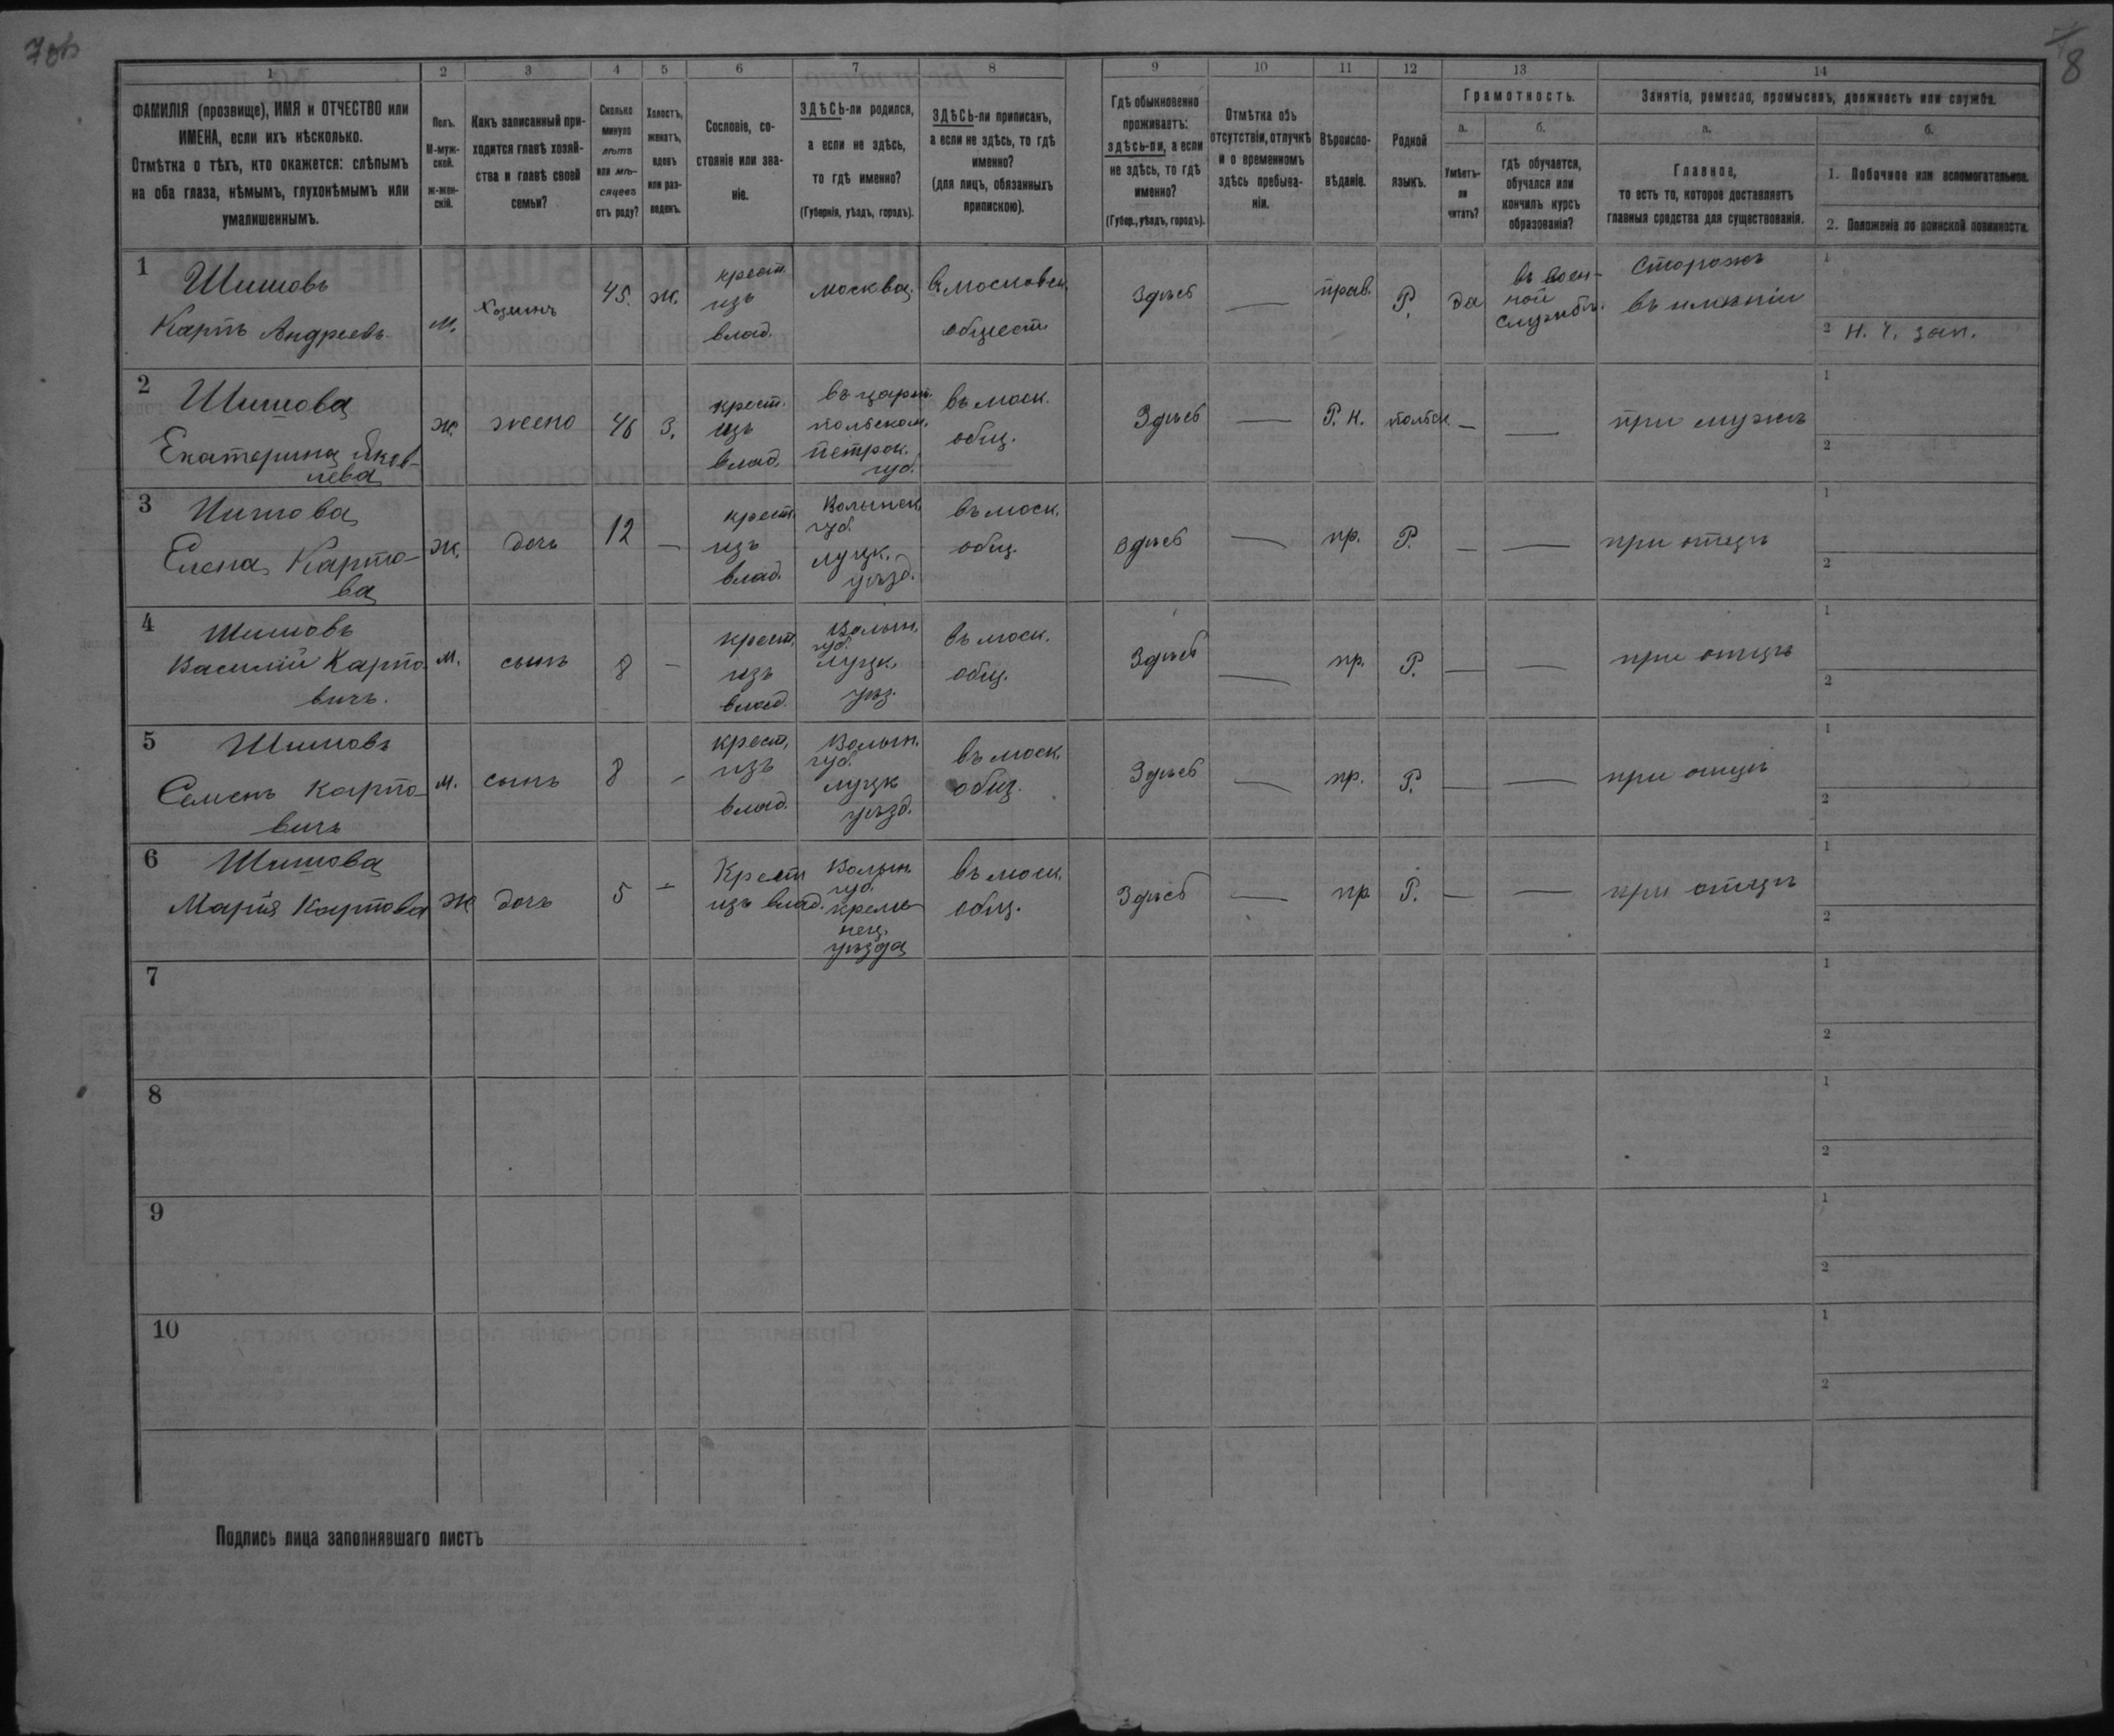 7об
8
1 2 3 4 5 6 7 8 9 10 11 12 13 14
ФАМИЛІЯ (прозвище), ИМЯ и ОТЧЕСТВО или
ИМЕНА, если ихъ нѣсколько.
Отмѣтка о тѣхъ, кто окажется: слѣпымъ
на оба глаза, нѣмымъ, глухонѣмымъ или
умалишеннымъ.
Полъ.
М-муж-
ской.
ж-жен-
скій.
Какъ записанный при-
ходится главѣ хозяй-
ства и главѣ своей
семьи?
Сколько
минуло
лѣтъ
или мѣ-
сяцевъ
отъ роду?
Холостъ,
женатъ,
вдовъ
или раз-
веденъ.
Сословіе, со-
стояніе или зва-
ніе.
ЗДѢСЬ-ли родился,
а если не здѣсь,
то гдѣ именно?
(Губернія, уѣздъ, городъ).
ЗДѢСЬ-ли приписанъ,
а если не здѣсь, то гдѣ
именно?
(для лицъ, обязанныхъ
припискою).
Гдѣ обыкновенно
проживаетъ:
здѣсь-ли, а если
не здѣсь, то гдѣ
именно?
(Губер., уѣздъ, городъ).
Отмѣтка объ
отсутствіи, отлучкѣ
и о временномъ
здѣсь пребыва-
ніи.
Вѣроиспо-
вѣданіе.
Родной
языкъ.
Грамотность.
а.
Умѣетъ-
ли
читать?
б.
гдѣ обучается,
обучался или
кончилъ курсъ
образованія?
Занятіе, ремесло, промыселъ, должность или служба.
а.
Главное,
то есть то, которое доставляетъ
главныя средства для существованія.
б.
1. Побочное или вспомогательное.
2. Положеніе по воинской повинности.
1
Шишовъ
Карпъ Андреевъ
м.
Хозяинъ
45.
ж.
крест.
изъ
влад.
Москва.
въ московск.
общест.
Здѣсь
—
прав.
Р.
да
въ воен-
ной
службѣ.
Сторожъ
въ имѣніи
1
2 Н. Ч. зап.
2
Шишова
Екатерина Яков-
лева
ж.
жена
46
З.
крест.
изъ
влад.
въ царст.
польском.
Петрок.
губ.
въ моск.
общ.
Здѣсь
—
Р. К.
польск
—
—
при мужѣ
1
2
3
Шишова
Елена Карпо-
ва
ж.
дочь
12
—
крест.
изъ
влад.
Волынск.
губ.
луцк.
уѣзд.
въ моск.
общ.
Здѣсь
—
пр.
Р.
—
—
при отцѣ
1
2
4
Шишовъ
Василій Карпо
вичъ.
м.
сынъ
8
—
крест.
изъ
влад.
Волын.
губ.
луцк.
уѣз.
въ моск.
общ.
Здѣсь
—
пр.
Р.
—
—
при отцѣ
1
2
5
Шишовъ
Семенъ Карпо-
вичъ
м.
сынъ
8
-
крест.
изъ
влад.
Волын.
губ.
луцк
уѣзд.
въ моск.
общ.
Здѣсь
—
пр.
Р.
—
—
при отцѣ
1
2
6
Шишова
Марія Карпова
ж
дочь
5
-
Крест
изъ влад.
Волын.
губ.
креме
нец.
уѣзда
въ моск.
общ.
Здѣсь
—
пр.
Р.
—
—
при отцѣ
1
2
7
1
2
8
1
2
9
1
2
10
1
2
Подпись лица заполнявшаго листъ